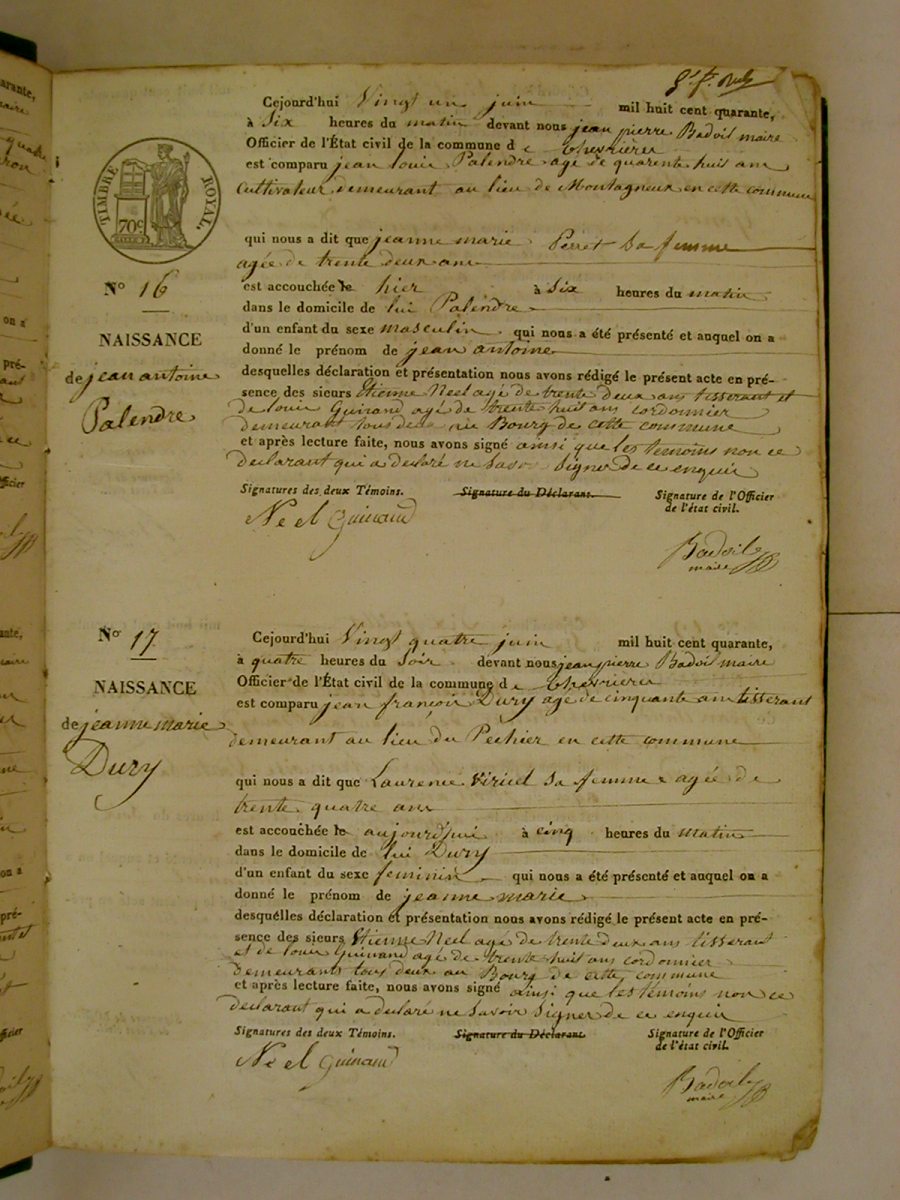 TIMBRE ROYAL.
70c
Cejourd'hui Vingt un juin mil huit cent quarante,
à Six heures du matin devant nous jean pierre Badoil maire
Officier de l'État civil de la commune de Chevrieres
est comparu jean louis Palendre agé de quarente huit ans
Cultivateur demeurant au lieu de Montagneux en cette commune
qui nous a dit que jeanne marie Perret Sa femme
agée de trente deux ans
est accouchée hier à Six heures du matin
dans le domicile de lui Palendre
d'un enfant du sexe masculin qui nous a été présenté et auquel on a
donné le prénom de jean antoine
desquelles déclaration et présentation nous avons rédigé le présent acte en pré-
sence des sieurs Etienne Neel agé de trente deux ans tisserant et
de louis Guinand agé de trente huit ans cordonnier
demeurant tous deux au Bourg de cette commune
et après lecture faite, nous avons signé ainsi que les temoins non ce
declarant qui a declaré ne Savoir Signer de ce enquis
Signatures des deux Témoins. Signature du Déclarant. Signature de l'Officier
de l'état civil.
Neel Guinand
Badoil
maire
No 16
NAISSANCE
de jean antoine
Palendre
No 17
NAISSANCE
de jeanne marie
Dury
Cejourd'hui Vingt quatre juin mil huit cent quarante,
à quatre heures du Soir devant nous jean pierre Badoil maire
Officier de l'État civil de la commune de Chevrieres
est comparu jean françois Dury agé de cinquante ans tisserant
demeurant au lieu du Pechier en cette commune
qui nous a dit que Laurence Viricel Sa femme agée de
trente quatre ans
est accouchée aujourd'hui à cinq heures du matin
dans le domicile de lui Dury
d'un enfant du sexe feminin qui nous a été présenté et auquel on a
donné le prénom de jeanne marie
desquelles déclaration et présentation nous avons rédigé le présent acte en pré-
sence des sieurs Etienne Neel agé de trente deux ans tisserant
et de louis Guinand agé de trente huit ans cordonnier
demeurants tous deux au Bourg de cette commune
et après lecture faite, nous avons signé ainsi que les temoins non ce
declarant qui a declaré ne Savoir Signer de ce enquis
Signatures des deux Témoins. Signature du Déclarant. Signature de l'Officier
de l'état civil.
Neel Guinand
Badoil
maire